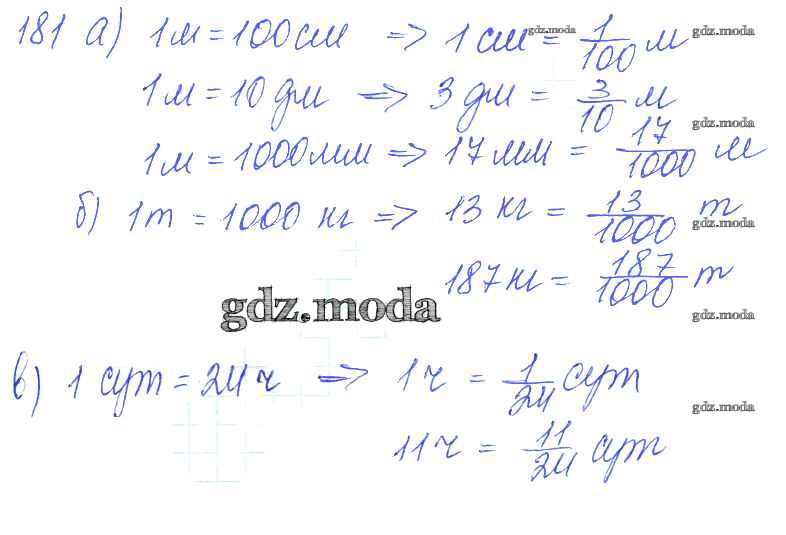 181 а) 1м = 100см => 1см = 1/100 м gdz.moda gdz.moda
1м = 10 дм => 3 дм = 3/10 м gdz.moda
1м = 1000мм => 17мм = 17/1000 м
б) 1т = 1000 кг => 13 кг = 13/1000 т gdz.moda
187кг = 187/1000 т gdz.moda
gdz.moda
в) 1 сут = 24ч => 1ч = 1/24 сут gdz.moda
11ч = 11/24 сут